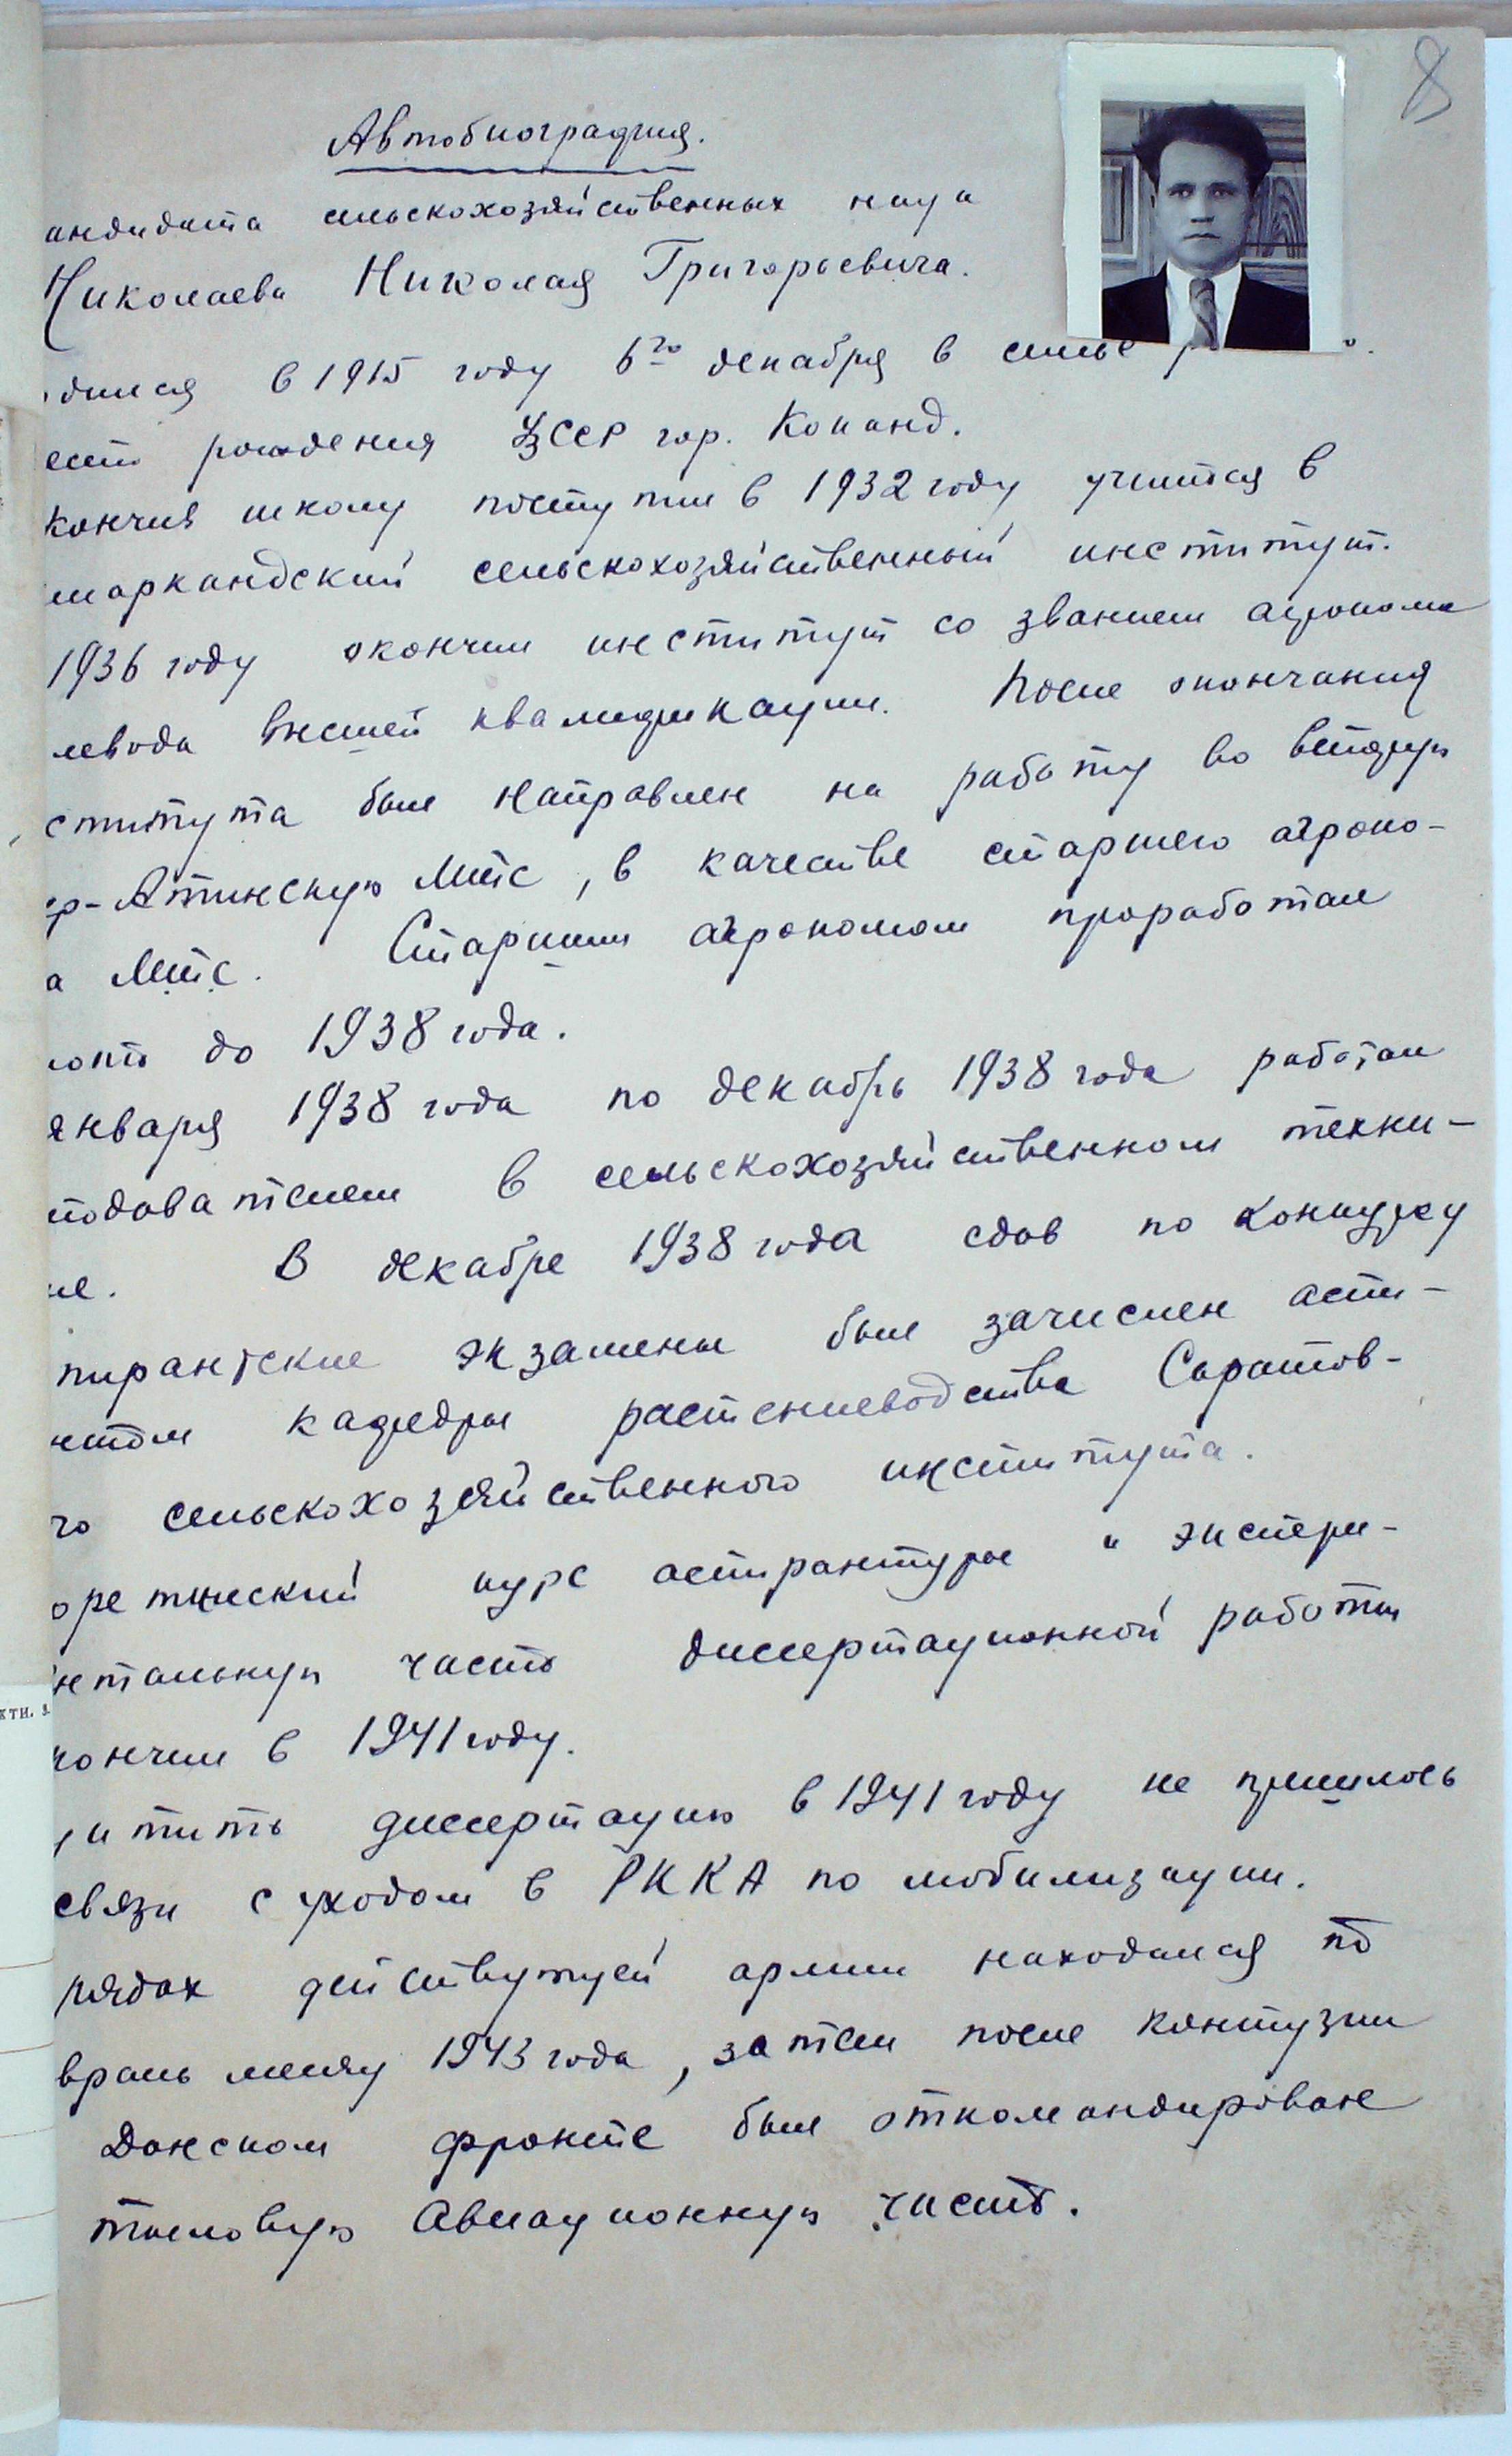 8
Автобиография.
андидата сельскохозяйственных наук
Николаева Николая Григорьевича.
дился в 1915 году 6го декабря в семье
есто рождения УзССР гор. Коканд.
кончив школу поступил в 1932 году учится в
маркандский сельскохозяйственный институт.
1936 году окончил институт со званием агронома
левода высшей квалификации. После окончания
ститута был направлен на работу во вторую
ер-Атинскую МТС, в качестве старшего агроно-
а МТС. Старшим агрономом проработал
до 1938 года.
января 1938 года по декабрь 1938 года работал
подавателем в сельскохозяйственном техни-
ме. В декабре 1938 года сдав по конкурсу
пирантские экзамены был зачислен аспи-
нтом кафедры растениеводства Саратов-
го сельскохозяйственного института.
оретический курс аспирантуры и экспери-
нтальную часть диссертационной работы
кончил в 1941 году.
щитить диссертацию в 1941 году не пришлось
связи с уходом в РККА по мобилизации.
рядах действующей армии находился по
враль месяц 1943 года, затем после контузии
Донском фронте был откомандирован
тыловую Авиационную часть.
КТН.